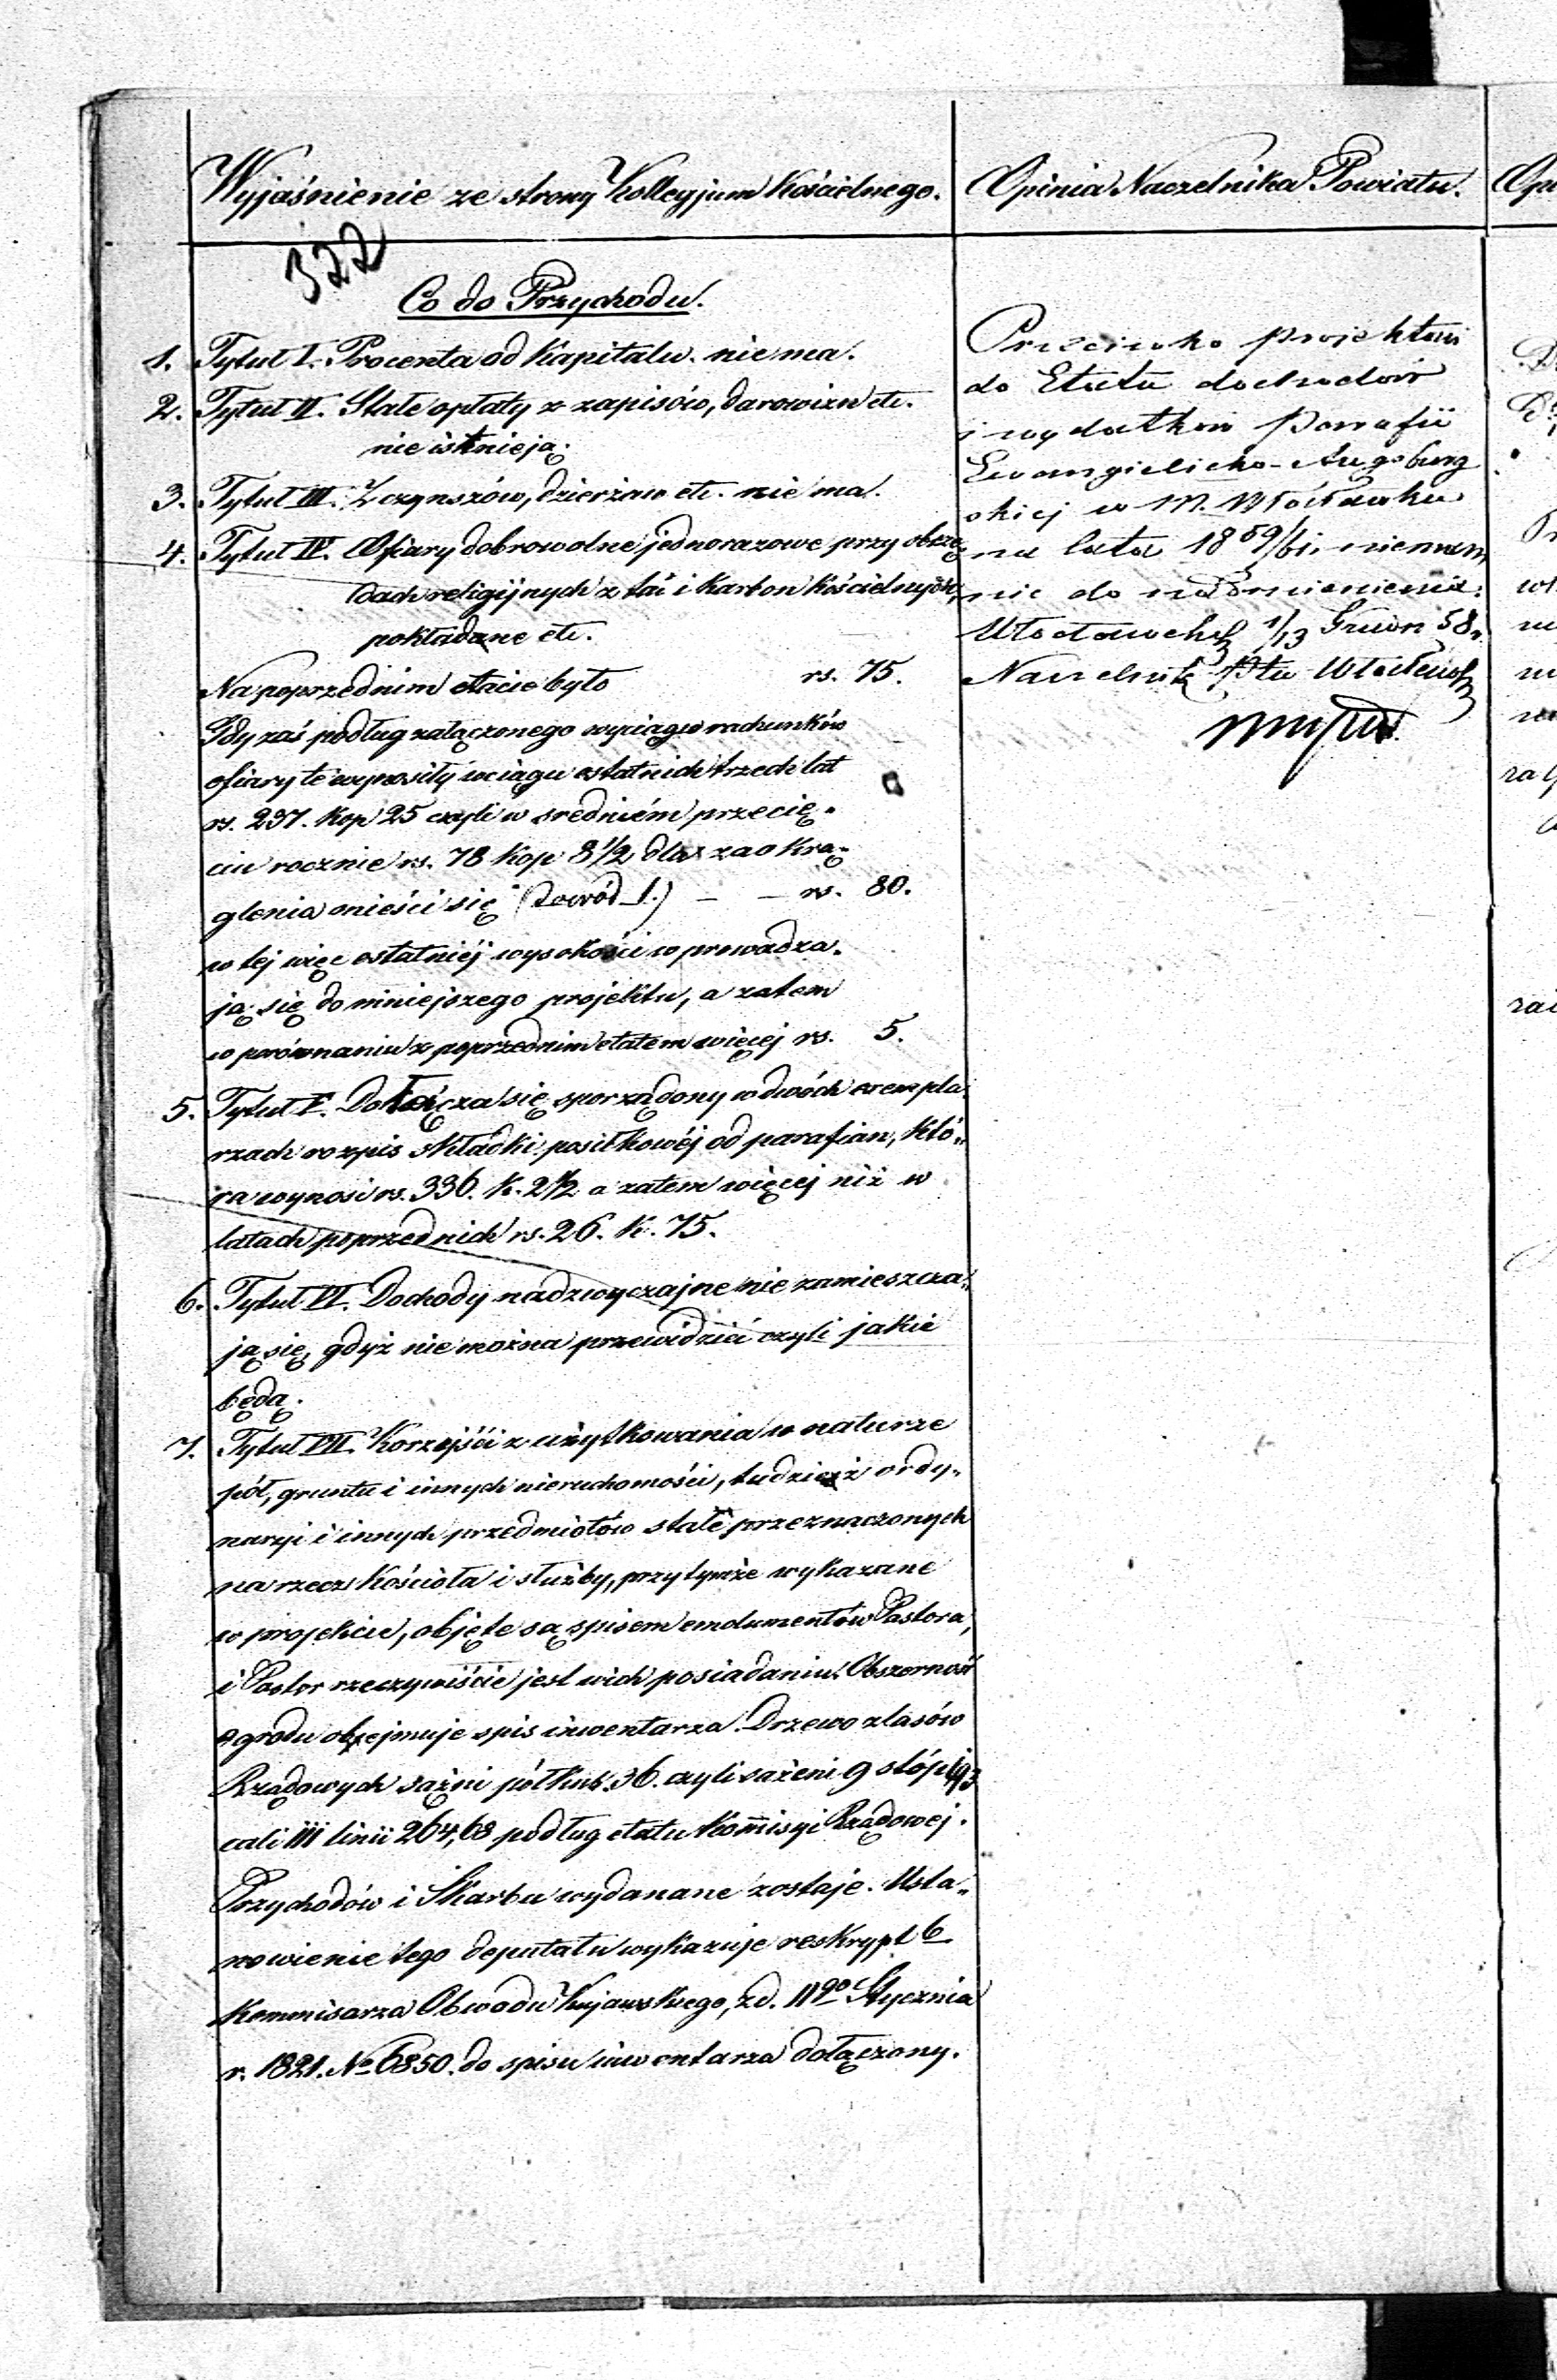 Wyjaśnienie ze strony Kollegjum Kościelnego.
322
Co do Przychodu.
1. Tytuł I. Procenta od Kapitału. nie ma.
2. Tytuł II. Stałe opłaty z zapisów, darowizn etc.
nie istnieją.
3. Tytuł III. Z czynszów, dzierżaw etc. nie ma.
4. Tytuł IV. Ofiary dobrowolne jednorazowe przy obrzę
dach religijnych z tac i karbon kościelnych,
pokładane etc.
Na poprzednim etacie było rs. 75.
Gdy zaś podług załączonego wyciągu rachunków
ofiary te wynosiły w ciągu ostatnich trzech lat
rs. 237. kop 25 czyli w średniém przecię„
ciu rocznie rs. 78 kop 8 1/2 dla zaokrą„
glenia mieści się (Dowód 1.) — — rs. 80.
w tej więc ostatniéj wysokości wprowadza„
ją się do niniejszego projektu, a zatem
w porównaniu z poprzednim etatem więcej rs. 5.
5. Tytuł V. Dołącza się sporządony w dwóch exempla„
rzach rozpis składki posiłkowéj od parafian, któ„
ra wynosi rs. 336. k. 2 1/2 a zatem więcej niż w
latach poprzednich rs. 26. k. 75.
6. Tytuł VI. Dochody nadzwyczajne nie zamieszcza„
ją się, gdyż nie można przewidzieć czyli jakie
będą.
7. Tytuł VII. Korzyści z użytkowania w naturze
pól, gruntu i innych nieruchomości, tudzież ordy„
naryi i innych przedmiotów stale przeznaczonych
na rzecz Kościoła i służby, przytymże wykazane
w projekcie, objęte są spisem emolumentów Pastora,
i Pastor rzeczywiście jest w ich posiadaniu. Obszerność
ogrodu obejmuje spis inwentarza. Drzewo z lasów
Rządowych sążni półkub. 36. czyli sążeni 9 stóp 193
cali 111 linii 264,68 podług etatu Kommisyi Rządowej.
Przychodów i Skarbu wydanane zostaje. Usta„
nowienie tego deputatu wykazuje reskrypt b
Kommisarza Obwodu Kujawskiego, z d. 11go Stycznia
r. 1821. No 6850. do spisu inwentarza dołączony.
Opinia Naczelnika Powiatu.
Przeciwko projektowi
do Etatu dochodów
i wydatków Parafii
Ewangielicko-Augsburg
skiej w M. Włocławku
na lata 1859/61. niemam
nic do nadmienienia.
Włocławek d. 1/13 Grudn 58.
Naczelnik Ptu Włocławsk